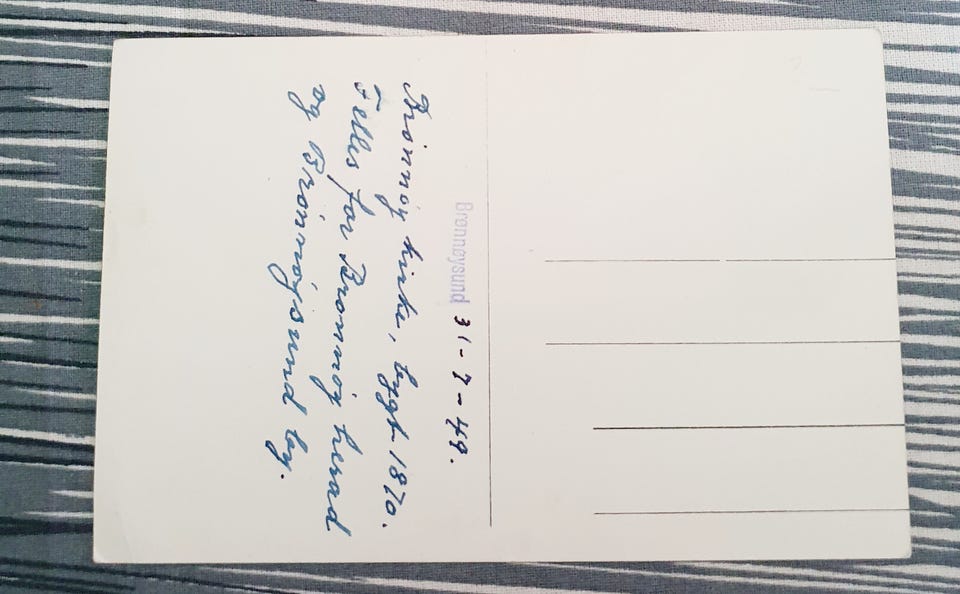 Brønnøysund 31-7-49.
Brønnøy kirke, bygt 1870.
Felles for Brønnøy herad
og Brønnøysund by.